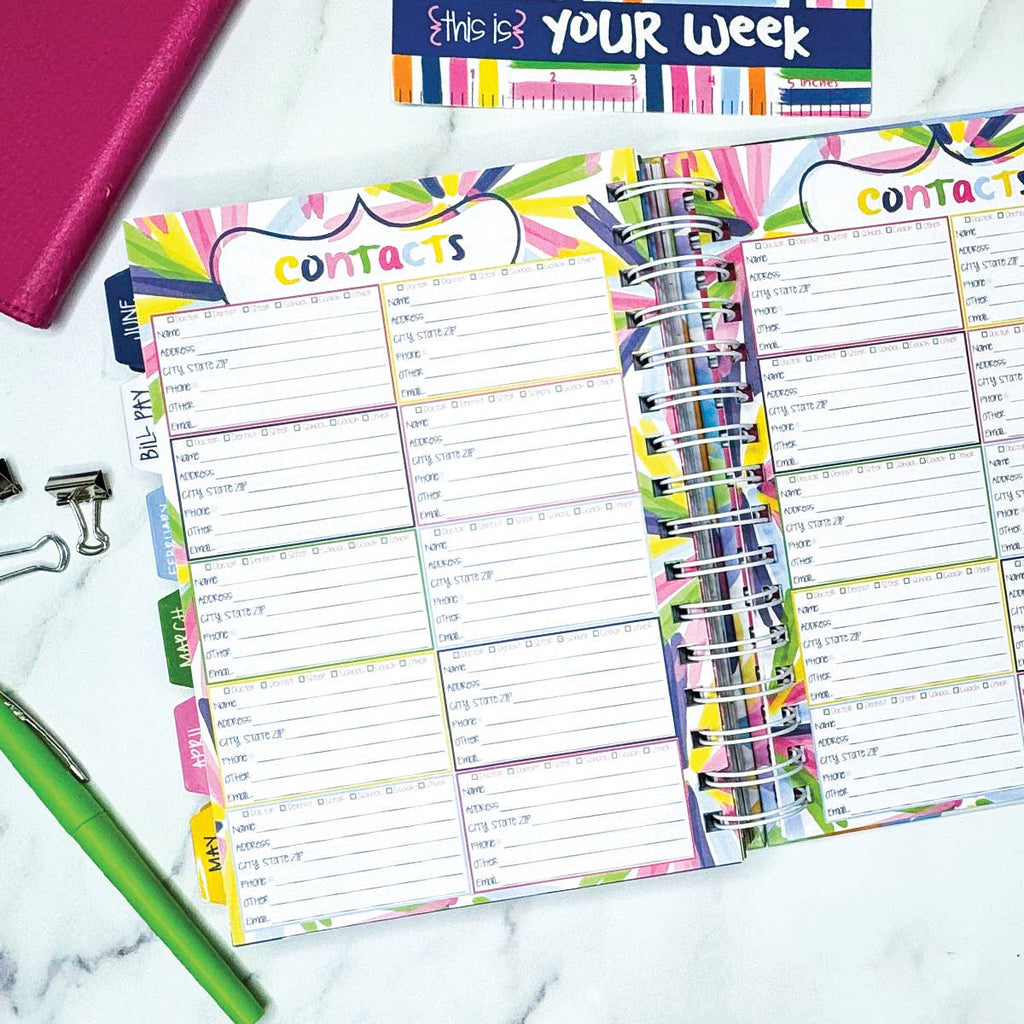 {this is} YOUR week
1 2 3 4 5 inches
contacts
Doctor Dentist Sitter School Coach Other
Name
Address
City State Zip
Phone
Other
Email
Doctor Dentist Sitter School Coach Other
Name
Address
City State Zip
Phone
Other
Email
Doctor Dentist Sitter School Coach Other
Name
Address
City State Zip
Phone
Other
Email
Doctor Dentist Sitter School Coach Other
Name
Address
City State Zip
Phone
Other
Email
Doctor Dentist Sitter School Coach Other
Name
Address
City State Zip
Phone
Other
Email
Doctor Dentist Sitter School Coach Other
Name
Address
City State Zip
Phone
Other
Email
Doctor Dentist Sitter School Coach Other
Name
Address
City State Zip
Phone
Other
Email
Doctor Dentist Sitter School Coach Other
Name
Address
City State Zip
Phone
Other
Email
Doctor Dentist Sitter School Coach Other
Name
Address
City State Zip
Phone
Other
Email
Doctor Dentist Sitter School Coach Other
Name
Address
City State Zip
Phone
Other
Email
JUNE
BILL PAY
FEBRUARY
MARCH
APRIL
MAY
contacts
Doctor Dentist Sitter School Coach Other
Name
Address
City State Zip
Phone
Other
Email
Doctor Dentist Sitter School Coach Other
Name
Address
City State Zip
Phone
Other
Email
Doctor Dentist Sitter School Coach Other
Name
Address
City State Zip
Phone
Other
Email
Doctor Dentist Sitter School Coach Other
Name
Address
City State Zip
Phone
Other
Email
Doctor Dentist Sitter School Coach Other
Name
Address
City State Zip
Phone
Other
Email
Doctor Dentist
Name
Address
City State Zip
Phone
Other
Email
Doctor
Name
Address
City State
Phone
Other
Email
Name
Address
City State
Phone
Other
Email